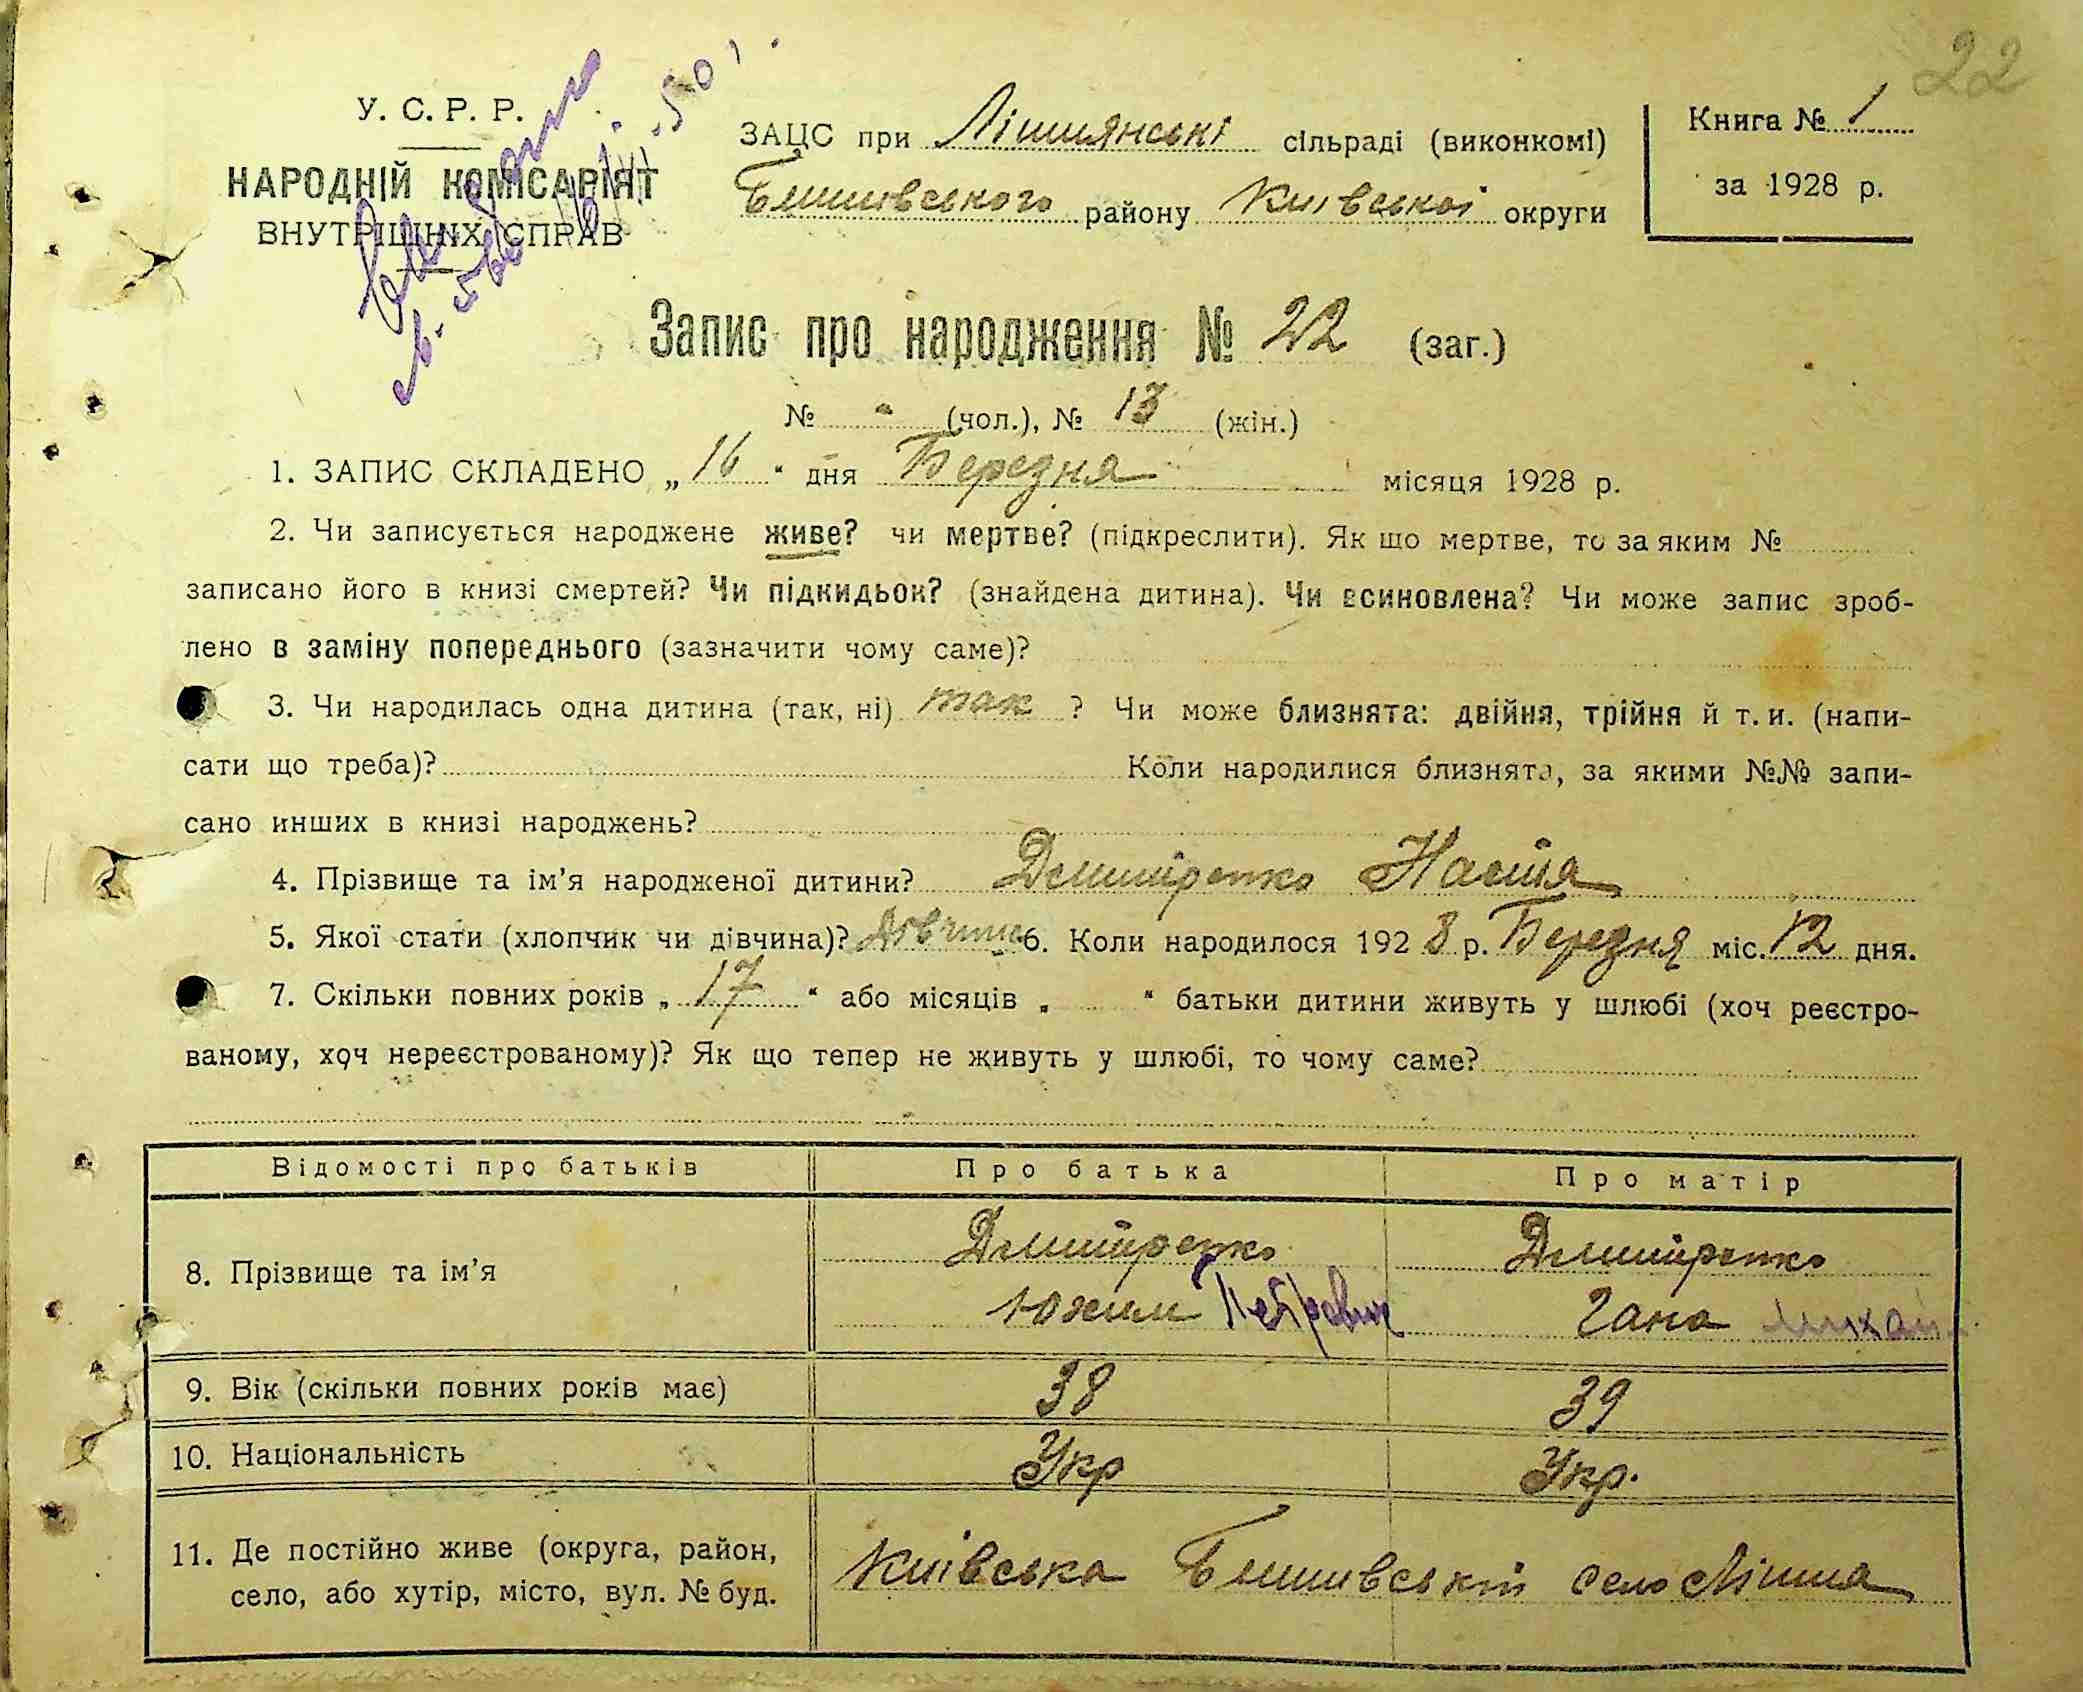 22
У. С. Р. Р.
НАРОДНІЙ КОМІСАРІЯТ
ВНУТРІШНІХ СПРАВ
ЗАЦС при Лішнянські сільраді (виконкомі)
Бишівського району Київської округи
Книга № 1
за 1928 р.
Запис про народження № 22 (заг.)
№ - (чол.), № 13 (жін.)
1. ЗАПИС СКЛАДЕНО „16“ дня Березня місяця 1928 р.
2. Чи записується народжене живе? чи мертве? (підкреслити). Як що мертве, то за яким №
записано його в книзі смертей? Чи підкидьок? (знайдена дитина). Чи всиновлена? Чи може запис зроб-
лено в заміну попереднього (зазначити чому саме)?
3. Чи народилась одна дитина (так, ні) так ? Чи може близнята: двійня, трійня й т. и. (напи-
сати що треба)? Коли народилися близнята, за якими №№ запи-
сано инших в книзі народжень?
4. Прізвище та ім’я народженої дитини? Дмитренко Настя
5. Якої стати (хлопчик чи дівчина)? Дівчина 6. Коли народилося 1928 р. Березня міс. 12 дня.
7. Скільки повних років „17“ або місяців „ “ батьки дитини живуть у шлюбі (хоч реєстро-
ваному, хоч нереєстрованому)? Як що тепер не живуть у шлюбі, то чому саме?
Відомості про батьків Про батька Про матір
8. Прізвище та ім’я Дмитренко Юхим Петрович Дмитренко Гана Михай
9. Вік (скільки повних років має) 38 39
10. Національність Укр Укр.
11. Де постійно живе (округа, район,
село, або хутір, місто, вул. № буд. Київська Бишівській село Лішня